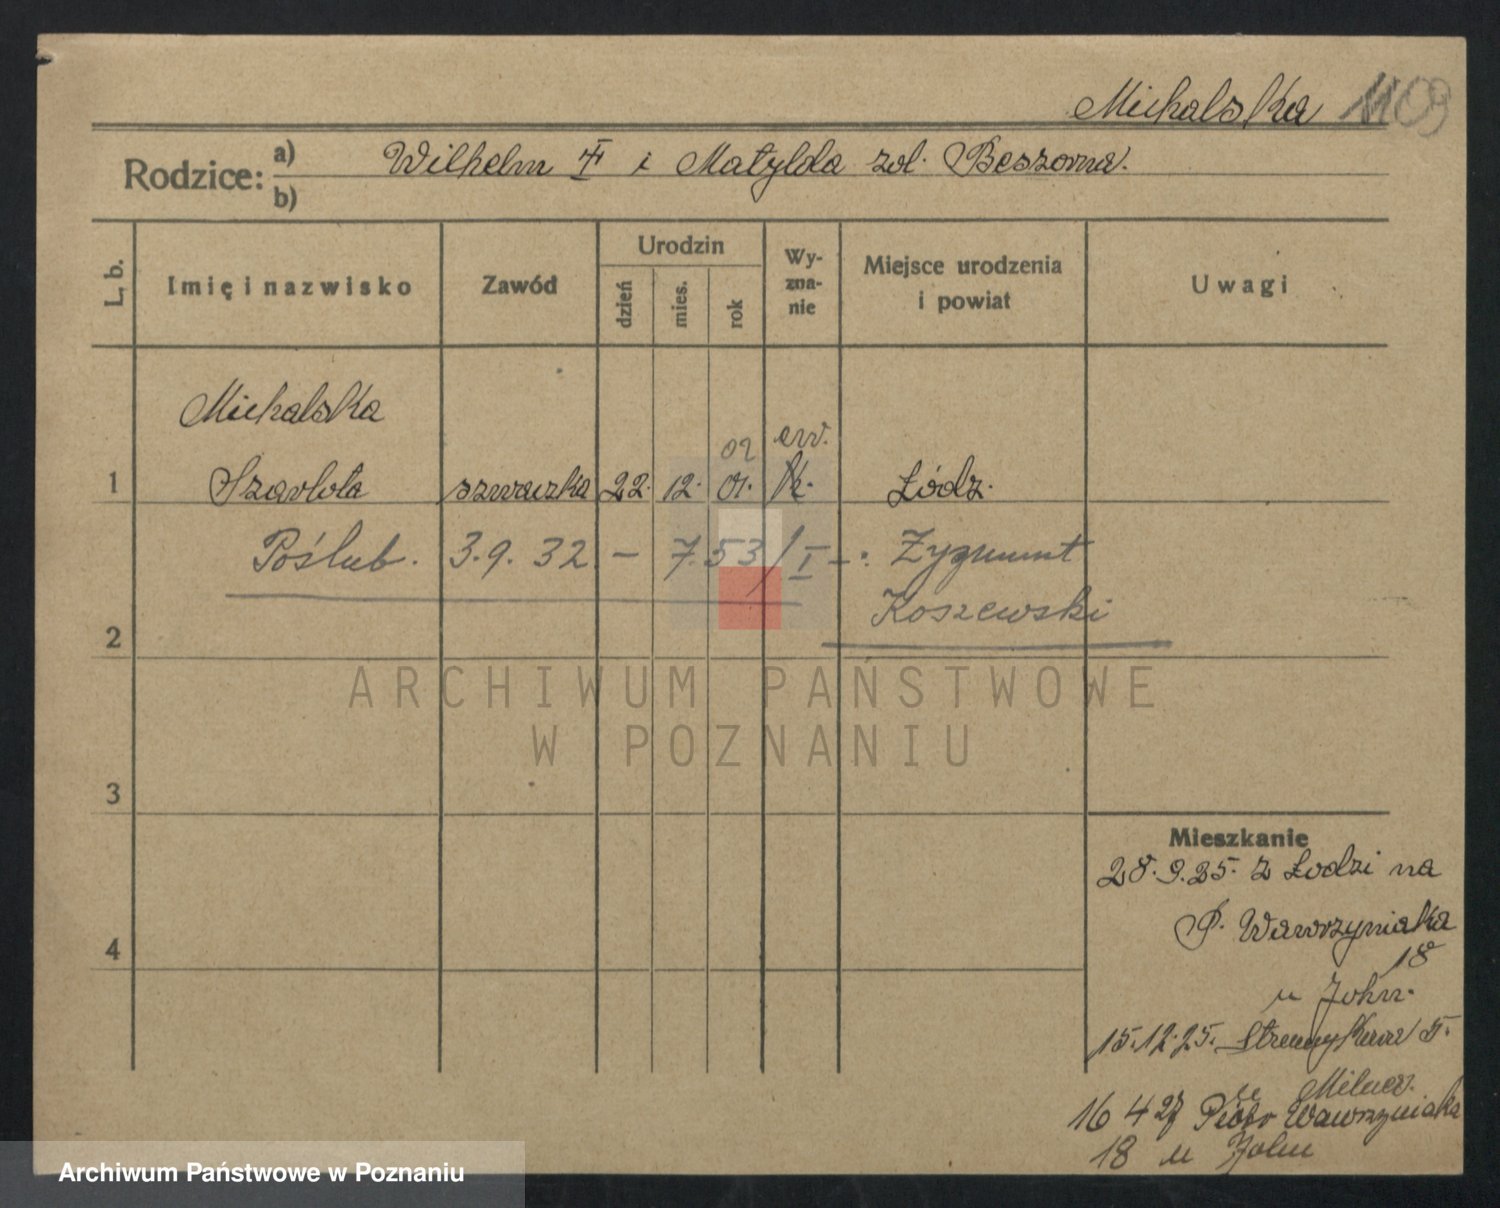 Michalska 1109
Rodzice: a) Wilhelm Ŧ i Matylda zd. Beszorna.
b)
L. b.
Imię i nazwisko
Zawód
Urodzin
dzień
mies.
rok
Wy-
zna-
nie
Miejsce urodzenia
i powiat
Uwagi
Michalska
02 ew.
1 Szarlota szwaczka 22. 12. 01. k. Łódź.
Poślub. 3.9.32 – 7.53/I –: Zygmunt
Koszewski
2
ARCHIWUM PAŃSTWOWE
W POZNANIU
3
4
Mieszkanie
28.9.25. z Łodzi na
P. Wawrzyniaka
18
u John.
15.12.25. 5.
16 4 27 Piotr Wawrzyniaka
18 u John
Archiwum Państwowe w Poznaniu